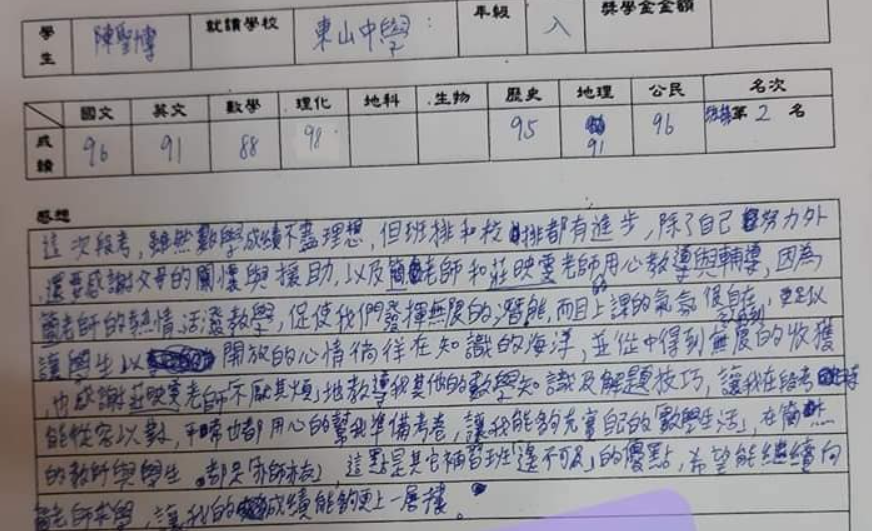 學生 陳聖博 就讀學校 東山中學 年級 八 獎學金金額
國文 英文 數學 理化 地科 生物 歷史 地理 公民 名次
成績 96 91 88 98 95 91 96 班排第 2 名
感想
這次段考,雖然數學成績不盡理想,但班排和校排都有進步,除了自己努力外
還要感謝父母的關懷與援助,以及簡老師和莊映雯老師用心教導與輔導,因為
簡老師的熱情活潑教學,促使我們發揮無限的潛能,而且上課的氣氛很自在,更足以
讓學生以開放的心情徜徉在知識的海洋,並從中得到無度的收獲
,也感謝莊映雯老師「不厭其煩」地教導我其他的數學知識及解題技巧,讓我在段考時
能從容以對,平常也都用心的幫我準備考卷,讓我能夠充實自己的「數學生活」,在簡
的教師與學生都是「亦師亦友」這點是其它補習班「遙不可及」的優點,希望能繼續向
簡老師求學,讓我的成績能夠更上一層樓。